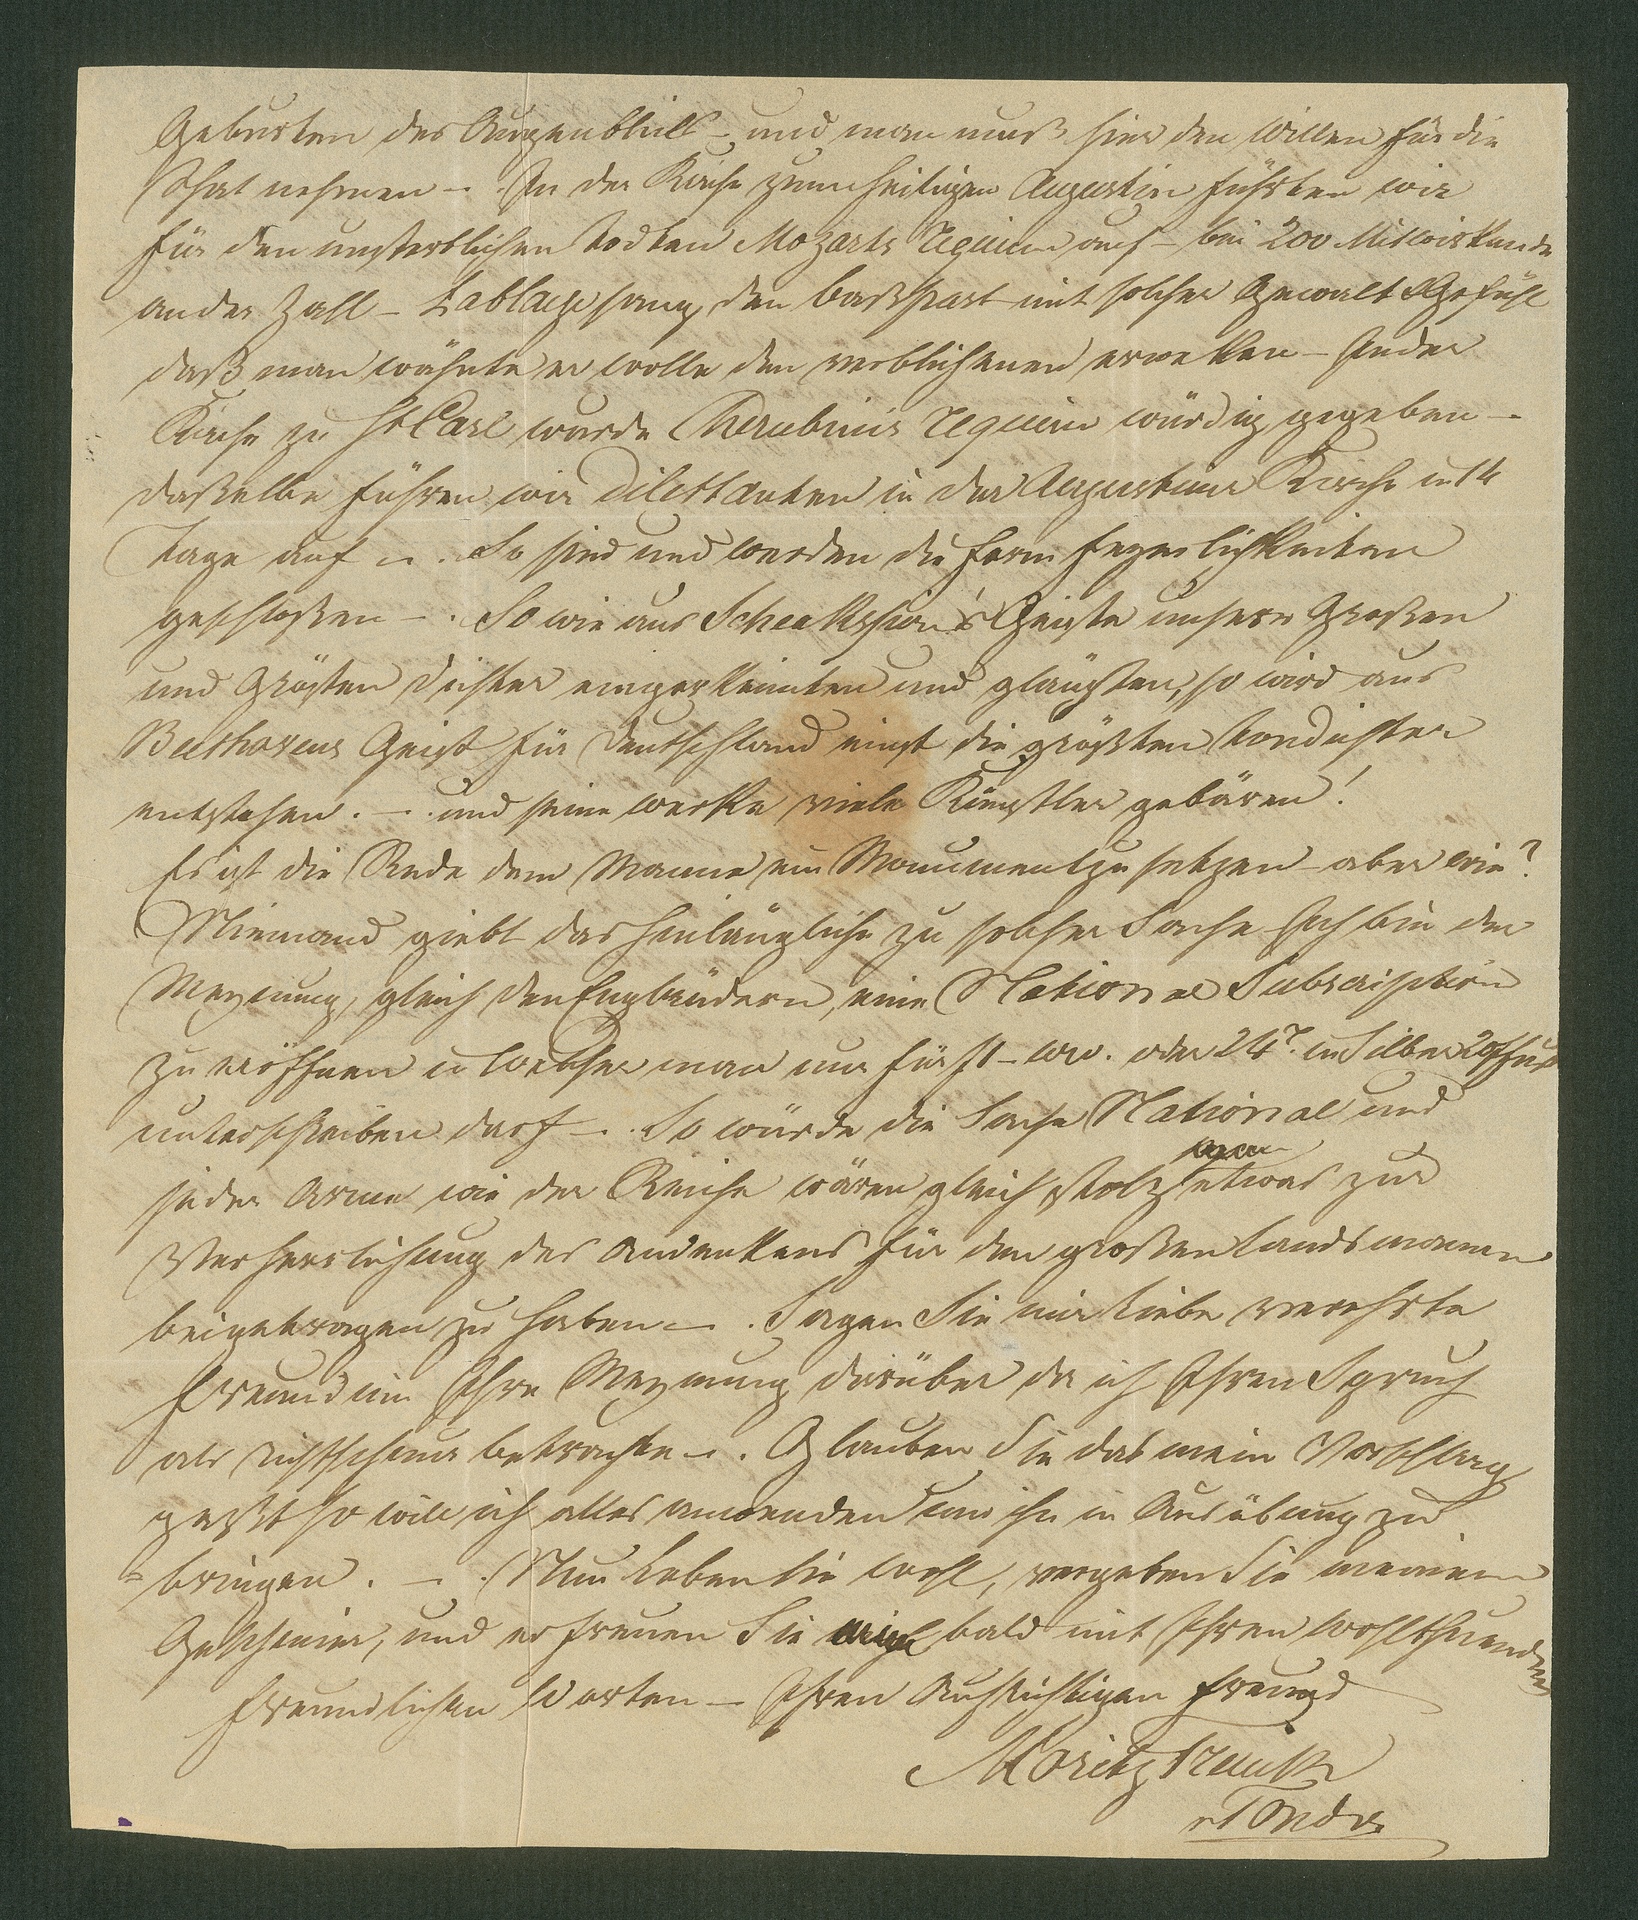 Geburten des Augenbliks – und man muß hier den Willen für die
That nehmen –. In der Kirche zum heiligen Augustin führten wir
für den unsterblichen Todten Mozarts Requiem auf – bei 200 Mitwirkende
an der Zahl – Lablache sang den Baßpart mit solcher Gewalt & Gefühl
daß man wähnte er wolle den verblichenen erwekken – In der
Kirche zu St Carl wurde Cherubinis Requiem würdig gegeben –
daßelbe führen wir Dilettanten in der Augustiner Kirche in 14
Tage auf –. So sind und werden die Feyerlichkeiten
geschloßen –. So wie aus Geiste unsere Großen
und Grösten Dichter und glänzten, so wird aus
Beethovens Geist für Deutschland einst die größten Tondichter
entstehen. –. und seine Werke viele Künstler gebären!
Es ist die Rede dem Manne ein Monument zu setzen – aber wie?
Niemand giebt das hinlängliche zu solcher Sache Ich bin der
Meynung, gleich den Engländern, eine National Subscription
zu eröffnen in welcher man nur für oder 24 in Silber
unterschreiben darf –. So würde die Sache National und
jeder Arme wie der Reiche wären gleich stolz etwas zur
Verherrlichung des Andenkens für den großen Landsmannen
beigetragen zu haben –. Sagen Sie mir liebe verehrte
Freundin Ihre Meynung darüber da ich Ihren Spruch
als richtschnur betrachte –. Glauben Sie das mein Vorschlag
paßt so will ich alles anwenden um ihn in Ausübung zu
bringen. –. Nun Leben Sie wohl, vergeben Sie meinem
Geschmier, und erfreuen Sie mich bald mit Ihren wohlthuenden
freundlichen Worten – Ihren Aufrichtigen Freund
Moritz